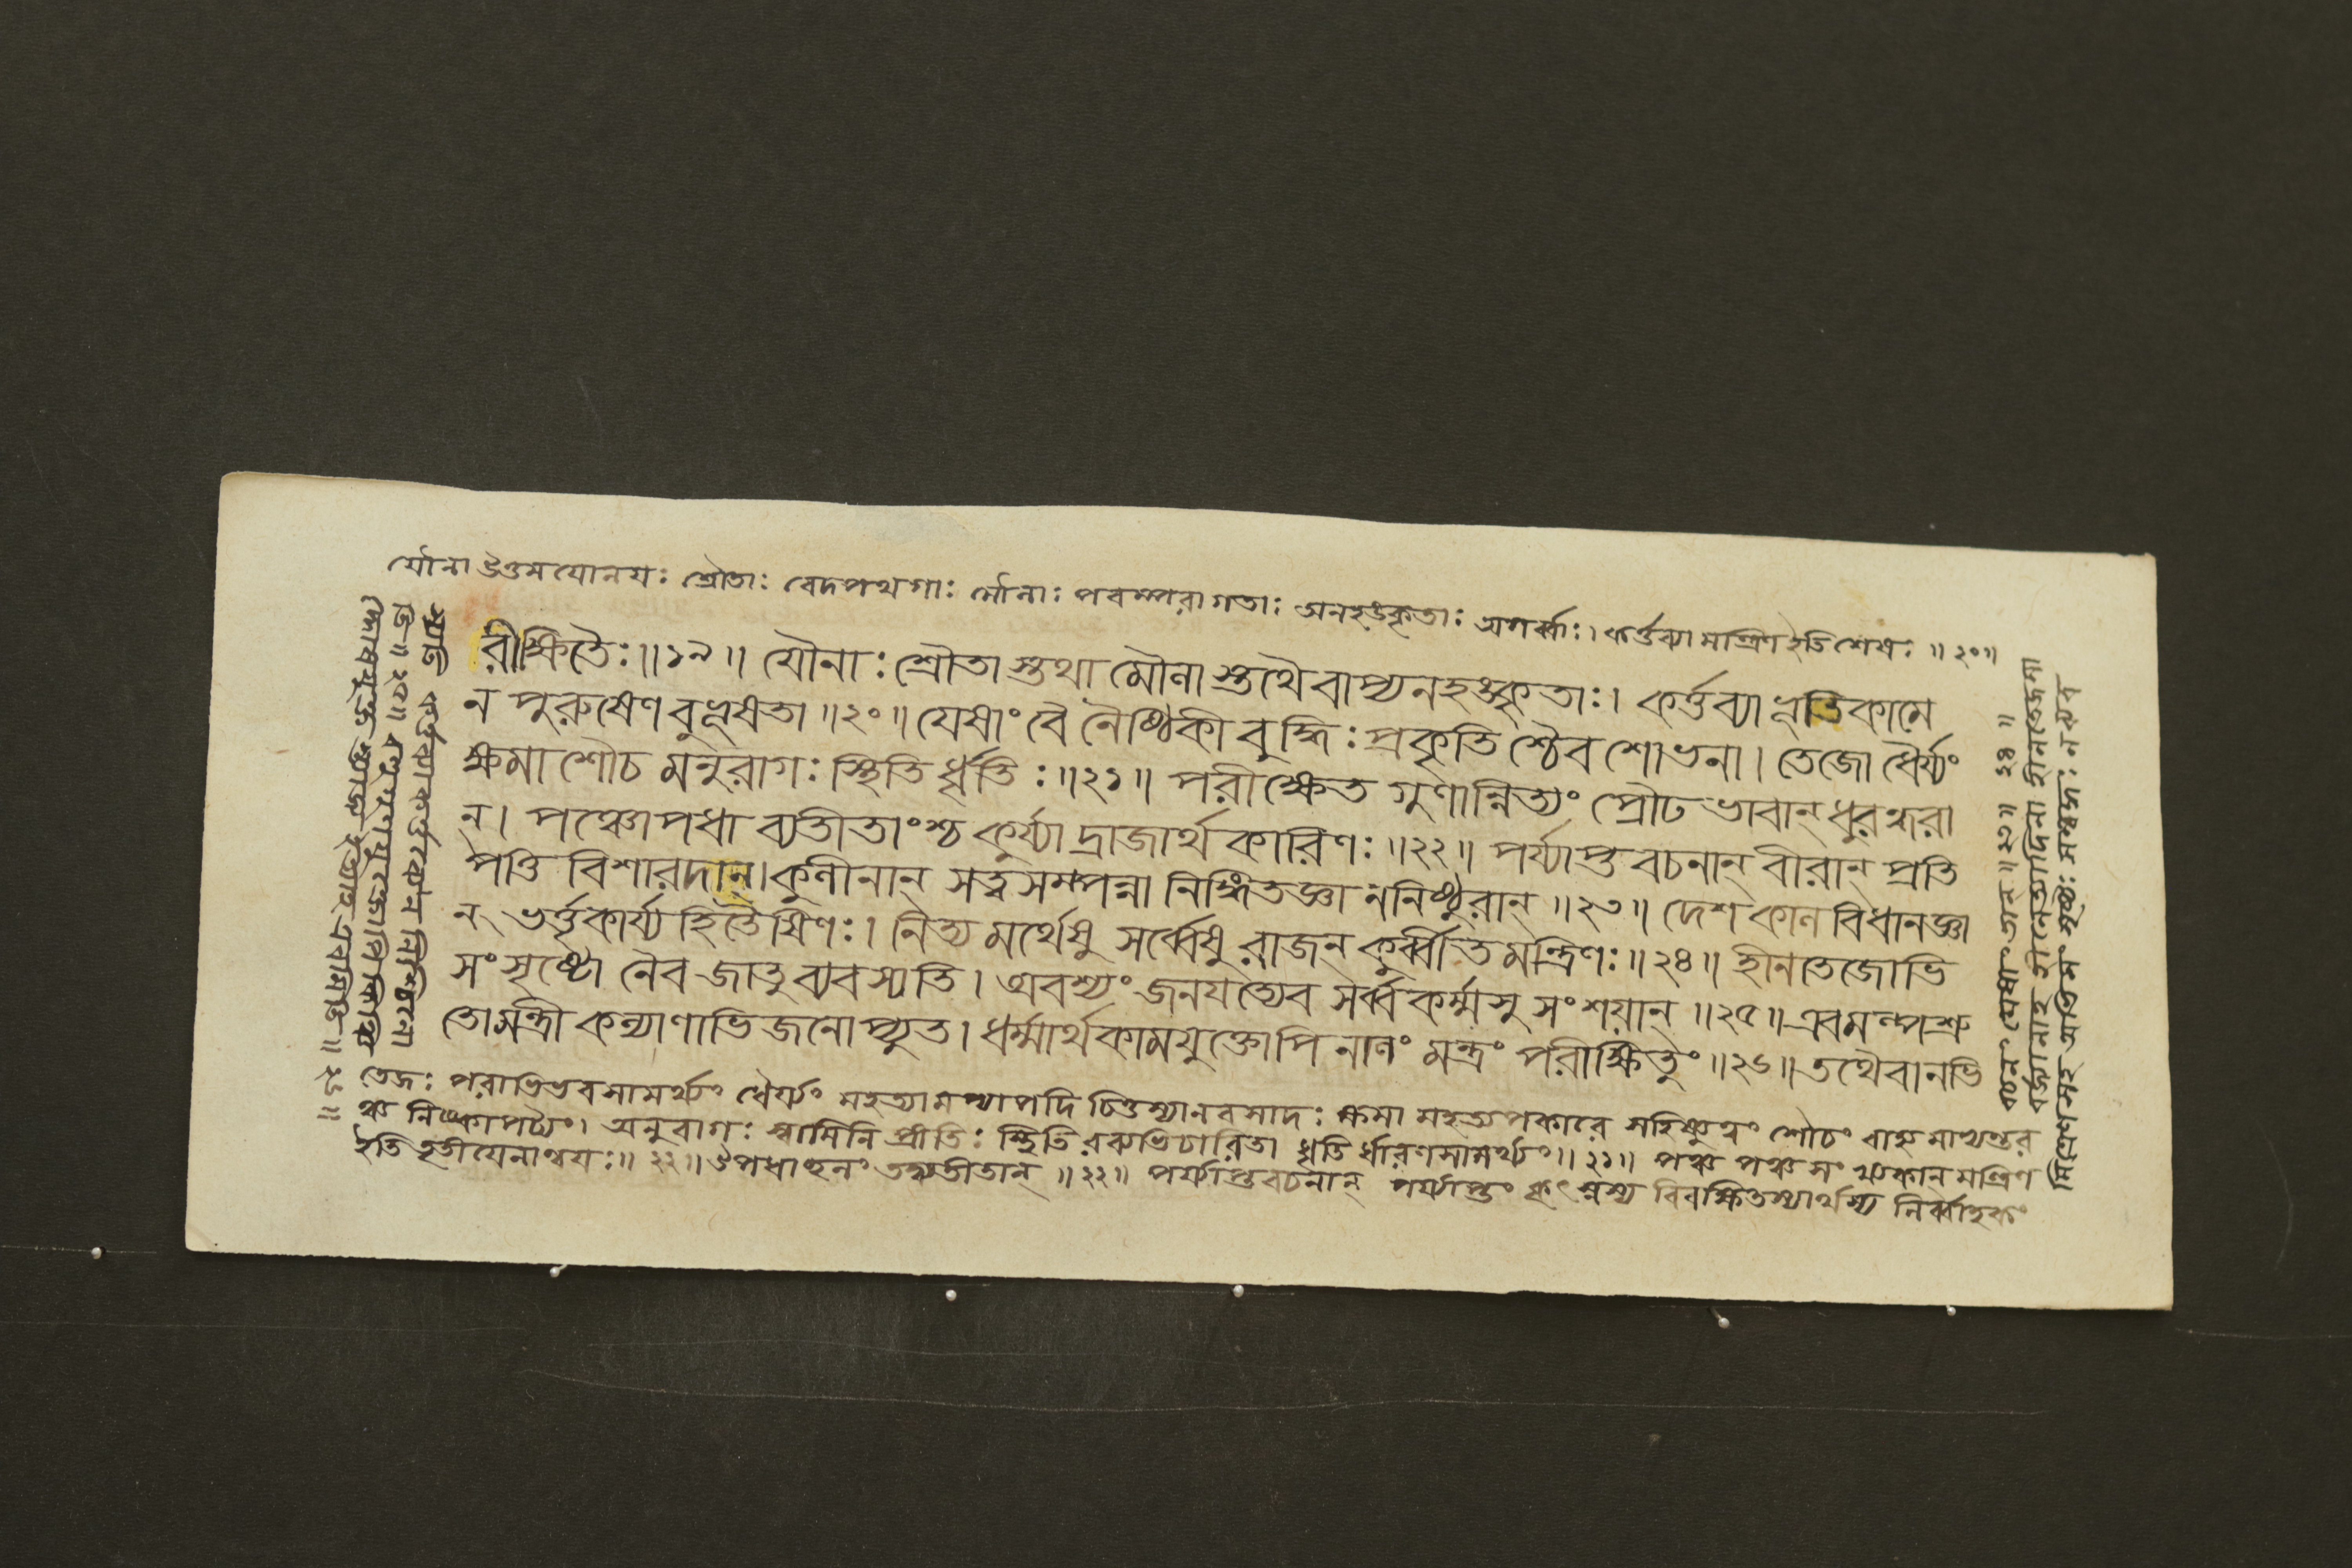 যৌনা উত্তমযোনয়ঃ শ্রৌতাঃ বেদপথগাঃ মৌলাঃ পরম্পরাগতাঃ অনহঙ্কৃতাঃ অগর্ব্বাঃ। কর্ত্তব্যা মন্ত্রিণ ইতি শেষঃ ॥২০॥
রীক্ষিতৈঃ॥১৯॥ যৌনাঃ শ্রৌতা স্তথা মৌলা স্তথৈবাপ্যনহঙ্কৃতাঃ। কর্ত্তব্যা ভূতিকামে
ন পুরুষেণ বুভূষতা॥২০॥ যেষাং বৈ নৈষ্ঠিকী বুদ্ধিঃ প্রকৃতি শ্চৈব শোভনা। তেজো ধৈর্য্যং
ক্ষমা শৌচ মনুরাগঃ স্থিতি র্ধৃতিঃ॥২১॥ পরীক্ষেত গুণান্নিত্যং প্রৌঢভাবান্ ধুরন্ধরা
ন্। পঞ্চোপধা ব্যতীতাংশ্চ কুর্য্যা দ্রাজার্থকারিণঃ॥২২॥ পর্য্যাপ্তবচনান্ বীরান্ প্রতি
পত্তি বিশারদান্। কুলীনান্ সত্ত্বসম্পন্না নিঙ্গিতজ্ঞা ননিষ্ঠুরান্॥২৩॥ দেশকাল বিধানজ্ঞা
ন্ ভর্ত্তৃকার্য্য হিতৈষিণঃ। নিত্য মর্থেষু সর্ব্বেষু রাজন্ কুর্ব্বীত মন্ত্রিণঃ॥২৪॥ হীনতেজোভি
সংসৃষ্টো নৈব জাতু ব্যবস্যতি। অবশ্যং জনযত্যেব সর্ব্বকর্ম্মসু সংশয়ান্॥২৫॥ এবমল্পশ্রু
তো মন্ত্রী কল্যাণাভিজনোপ্যুত। ধর্ম্মার্থকামযুক্তোপি নালং মন্ত্রং পরীক্ষিতুং॥২৬॥ তথৈবানভি
তেজঃ পরাভিভবসামর্থ্যং ধৈর্য্যং মহত্যামপ্যাপদি চিত্তস্যানবসাদঃ ক্ষমা মহত্যপকারে সহিষ্ণুত্বং শৌচং বাহ্যমাভ্যন্তর
ঞ্চ নিষ্কাপট্যং। অনুরাগঃ স্বামিনি প্রীতিঃ স্থিতি রব্যভিচারিতা ধৃতি র্ধারণসামর্থ্যং॥২১॥ পঞ্চ পঞ্চসংখ্যকান্ মন্ত্রিণ
ইতি তৃতীয়েনান্বয়ঃ॥২২॥ উপধাছলং তদ্ব্যতীতান্॥২২॥ পর্য্যাপ্তবচনান্ পর্য্যাপ্তং কৃৎস্নস্য বিবক্ষিতস্যার্থস্য নির্ব্বাহকং
বচনং যেষাং তান্॥২৩॥ ২৪॥
মিত্রেণ সহ
॥২৫॥
॥২৬॥